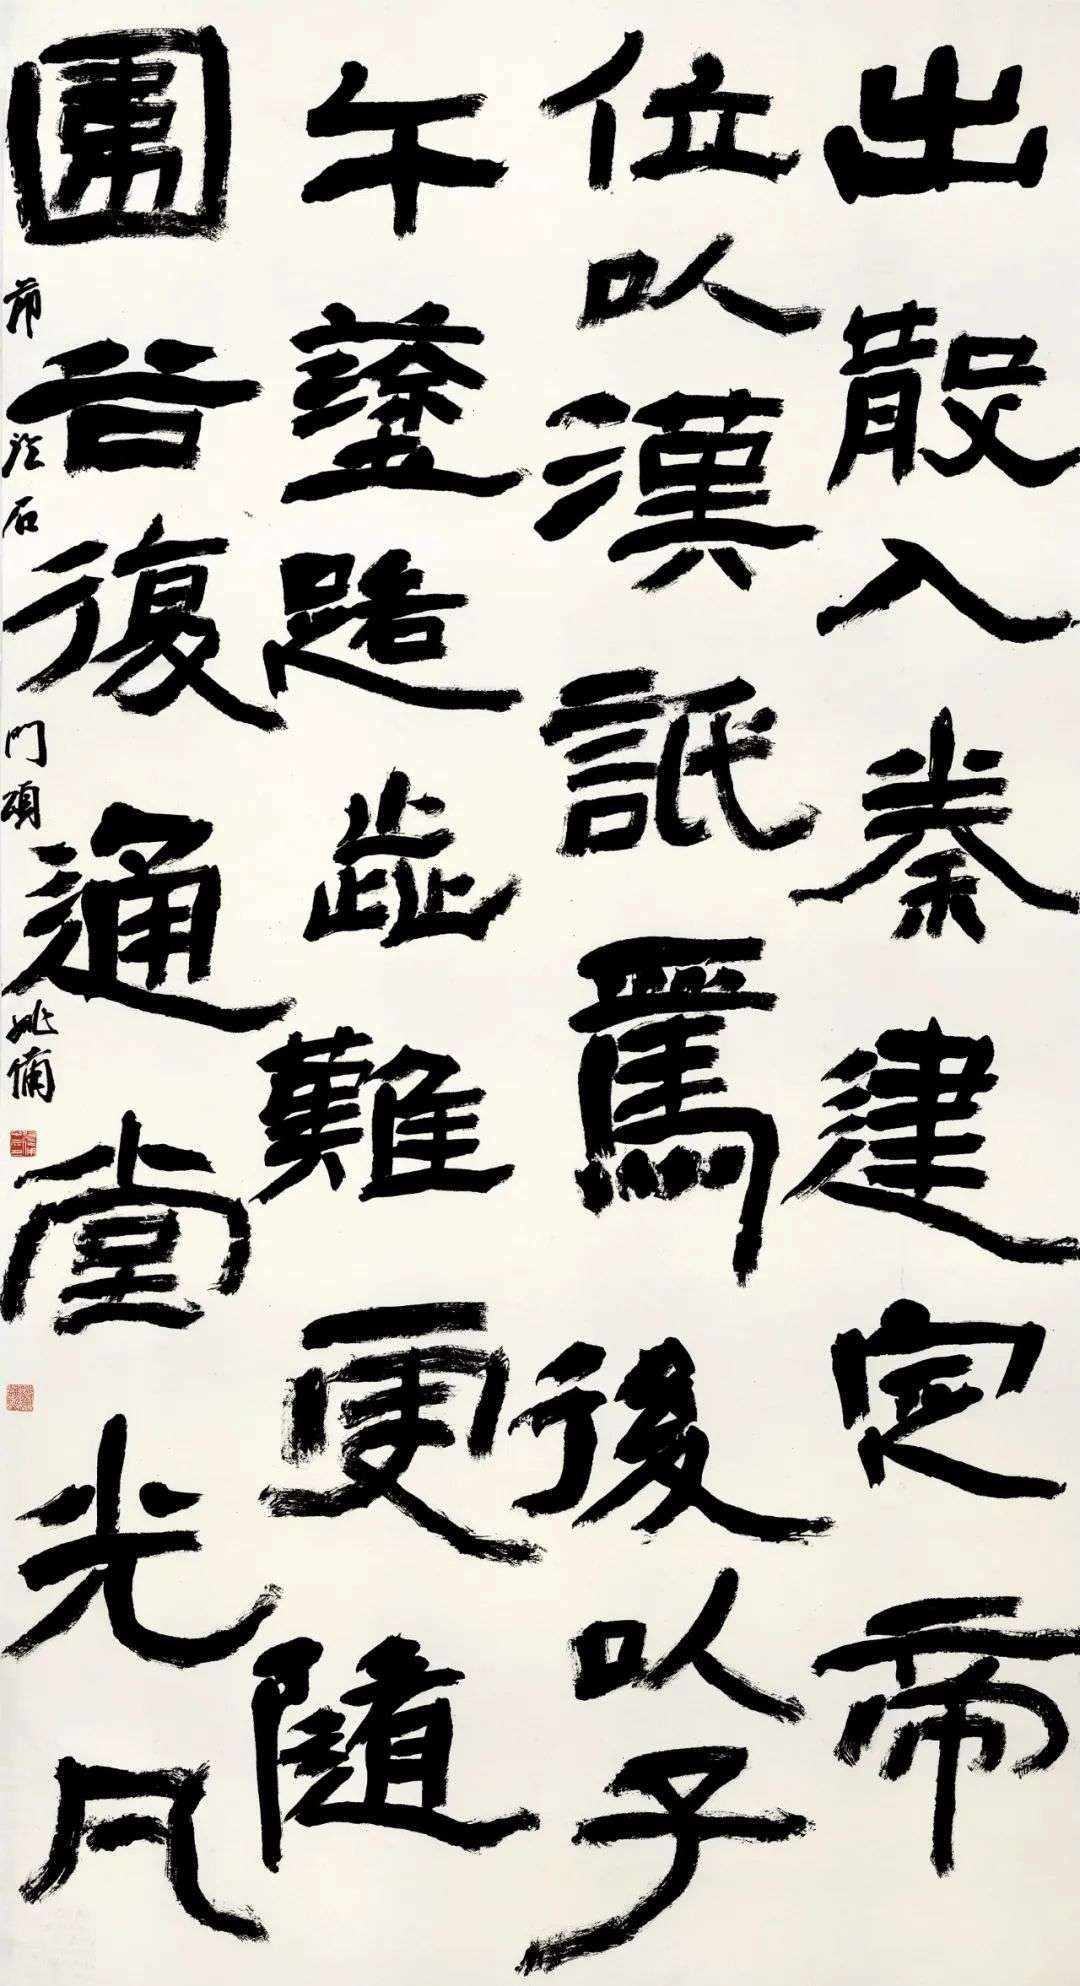 出散入秦建定帝
位以漢詆焉後以子
午塗路歮難更隨
圍谷復通堂光凡
節臨石門頌